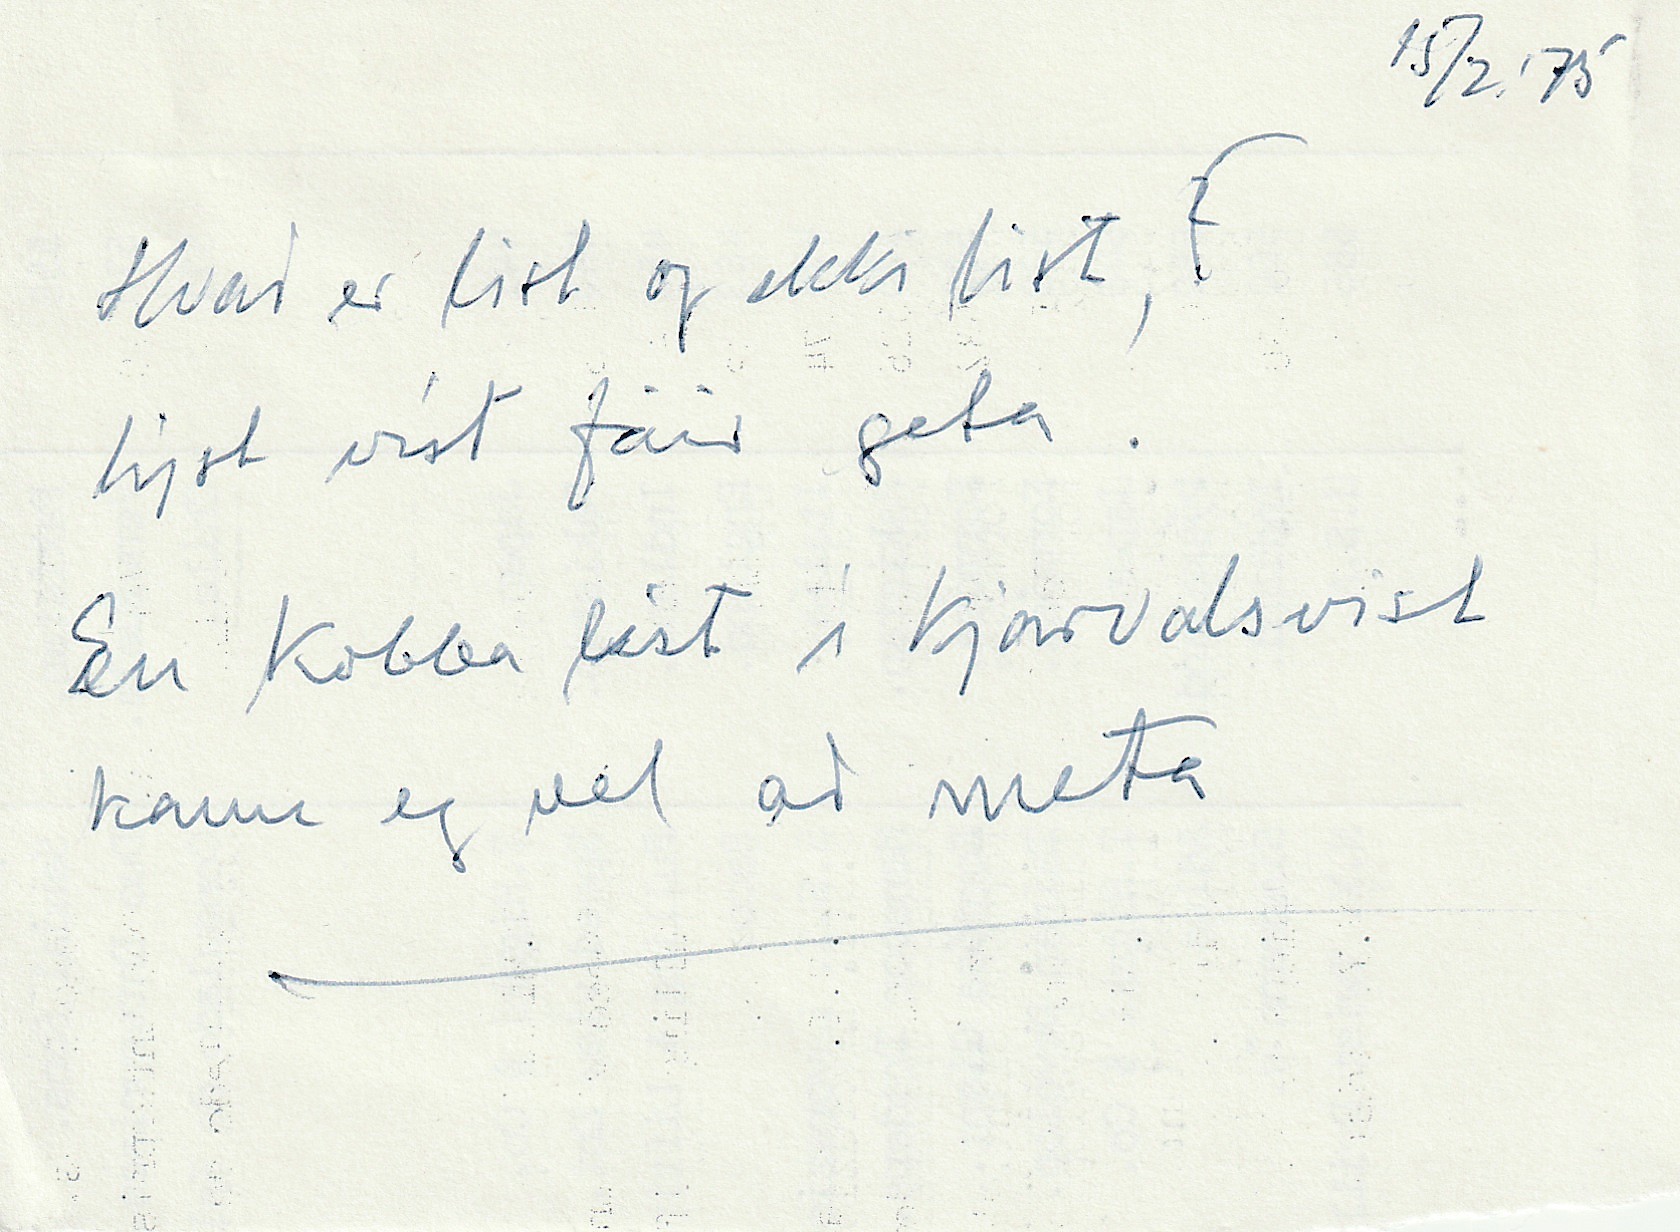 15/2 '75
Hvað er list og ekki list,
lýst víst fáir geta.
En Kobba list í Kjarvalsvist
kann eg vel að meta